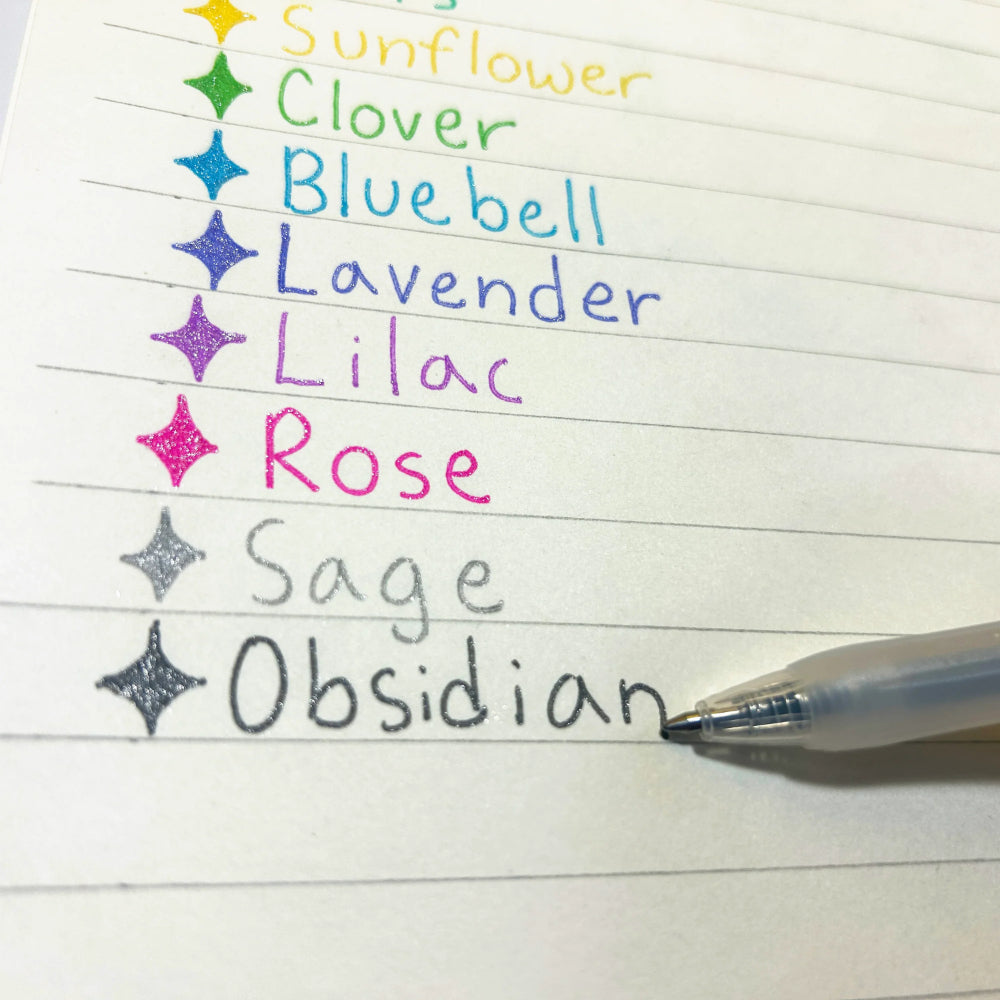 Sunflower
Clover
Bluebell
Lavender
Lilac
Rose
Sage
Obsidian